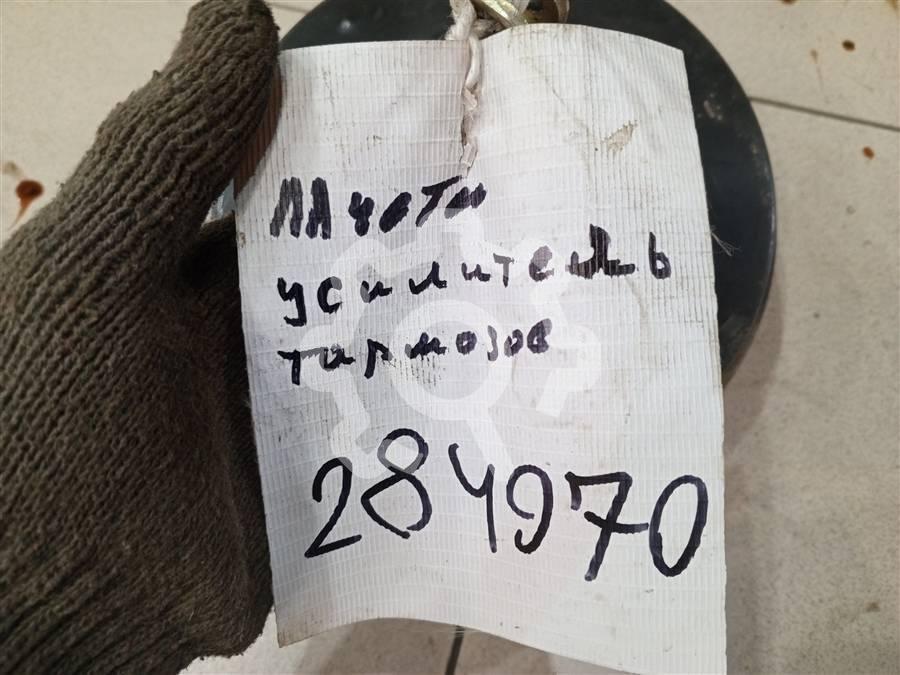 ЛАЧЕТИ
усилитель
тармозов
284970